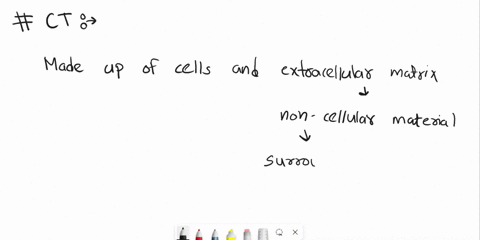 # CT :→
Made up of cells and extracellular matrix
non-cellular material
surrou